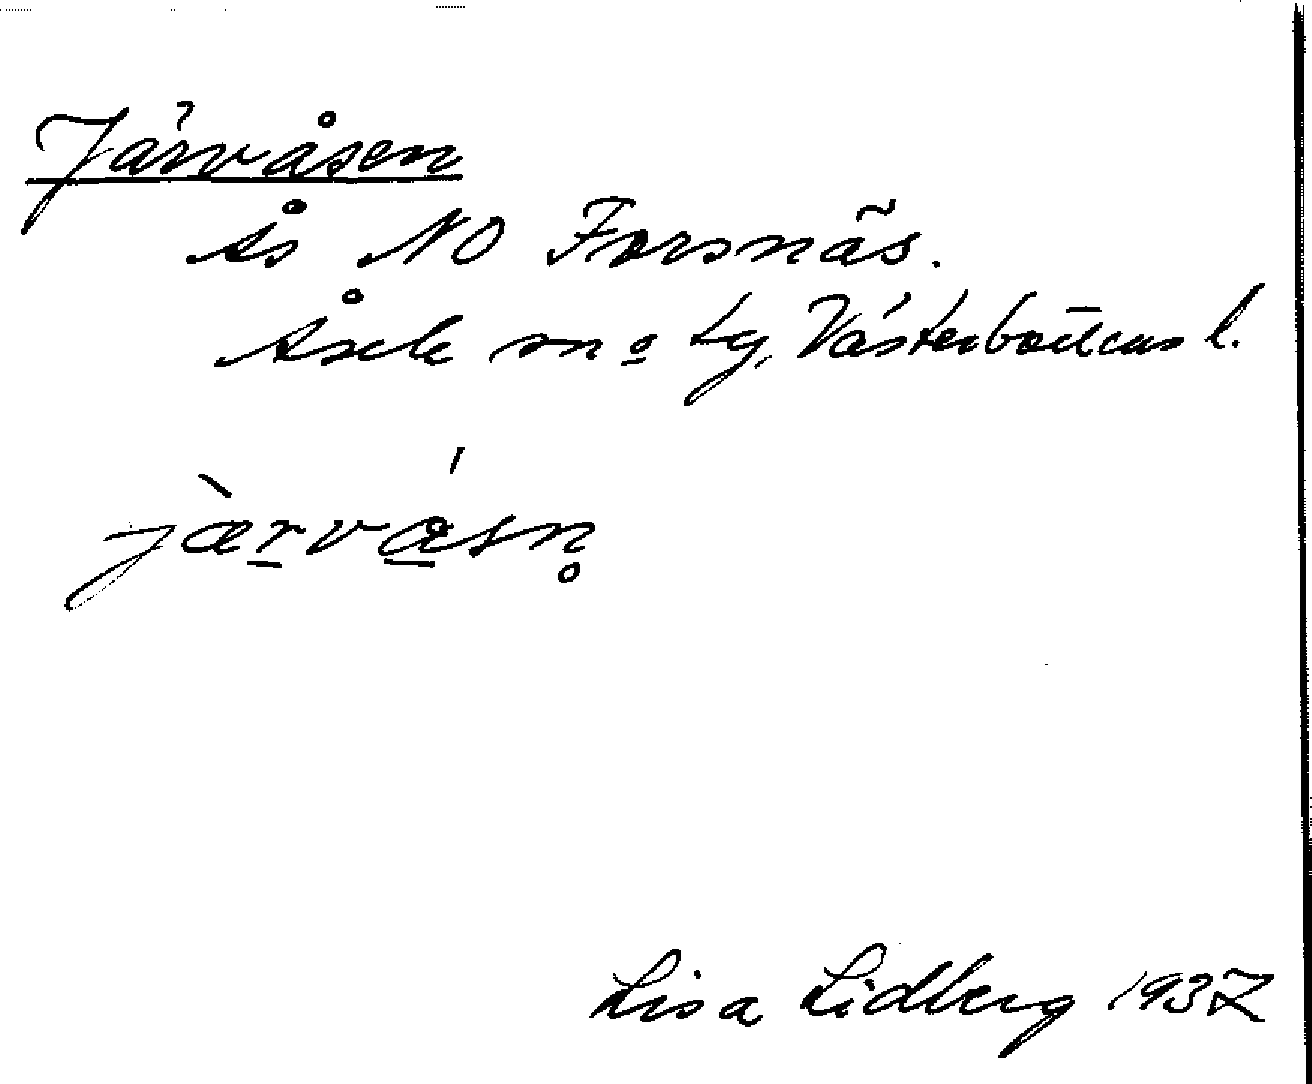 Järvåsen
Ås NO Forsnäs.
Åsele sn o lg, Västerbottens l.
jæ̀rvǻsn̥
Lisa Lidberg 1937